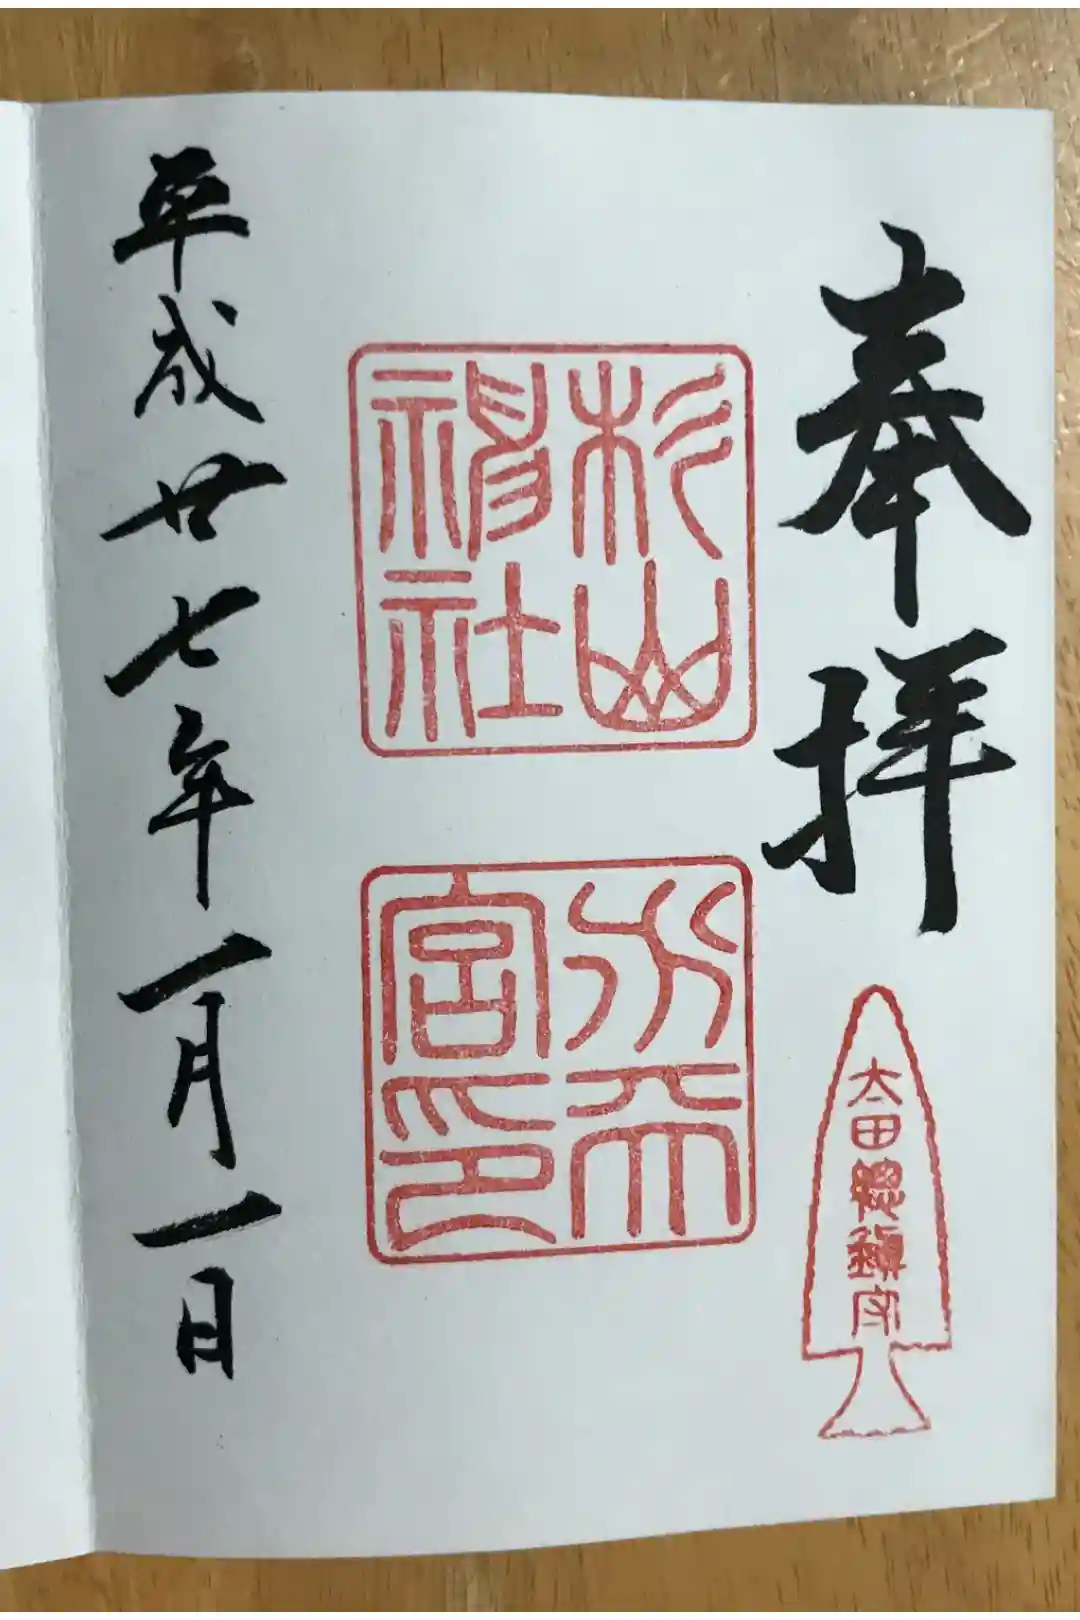 奉拝
太田總鎮守
杉山
神社
水天
宮印
平成廿七年一月一日